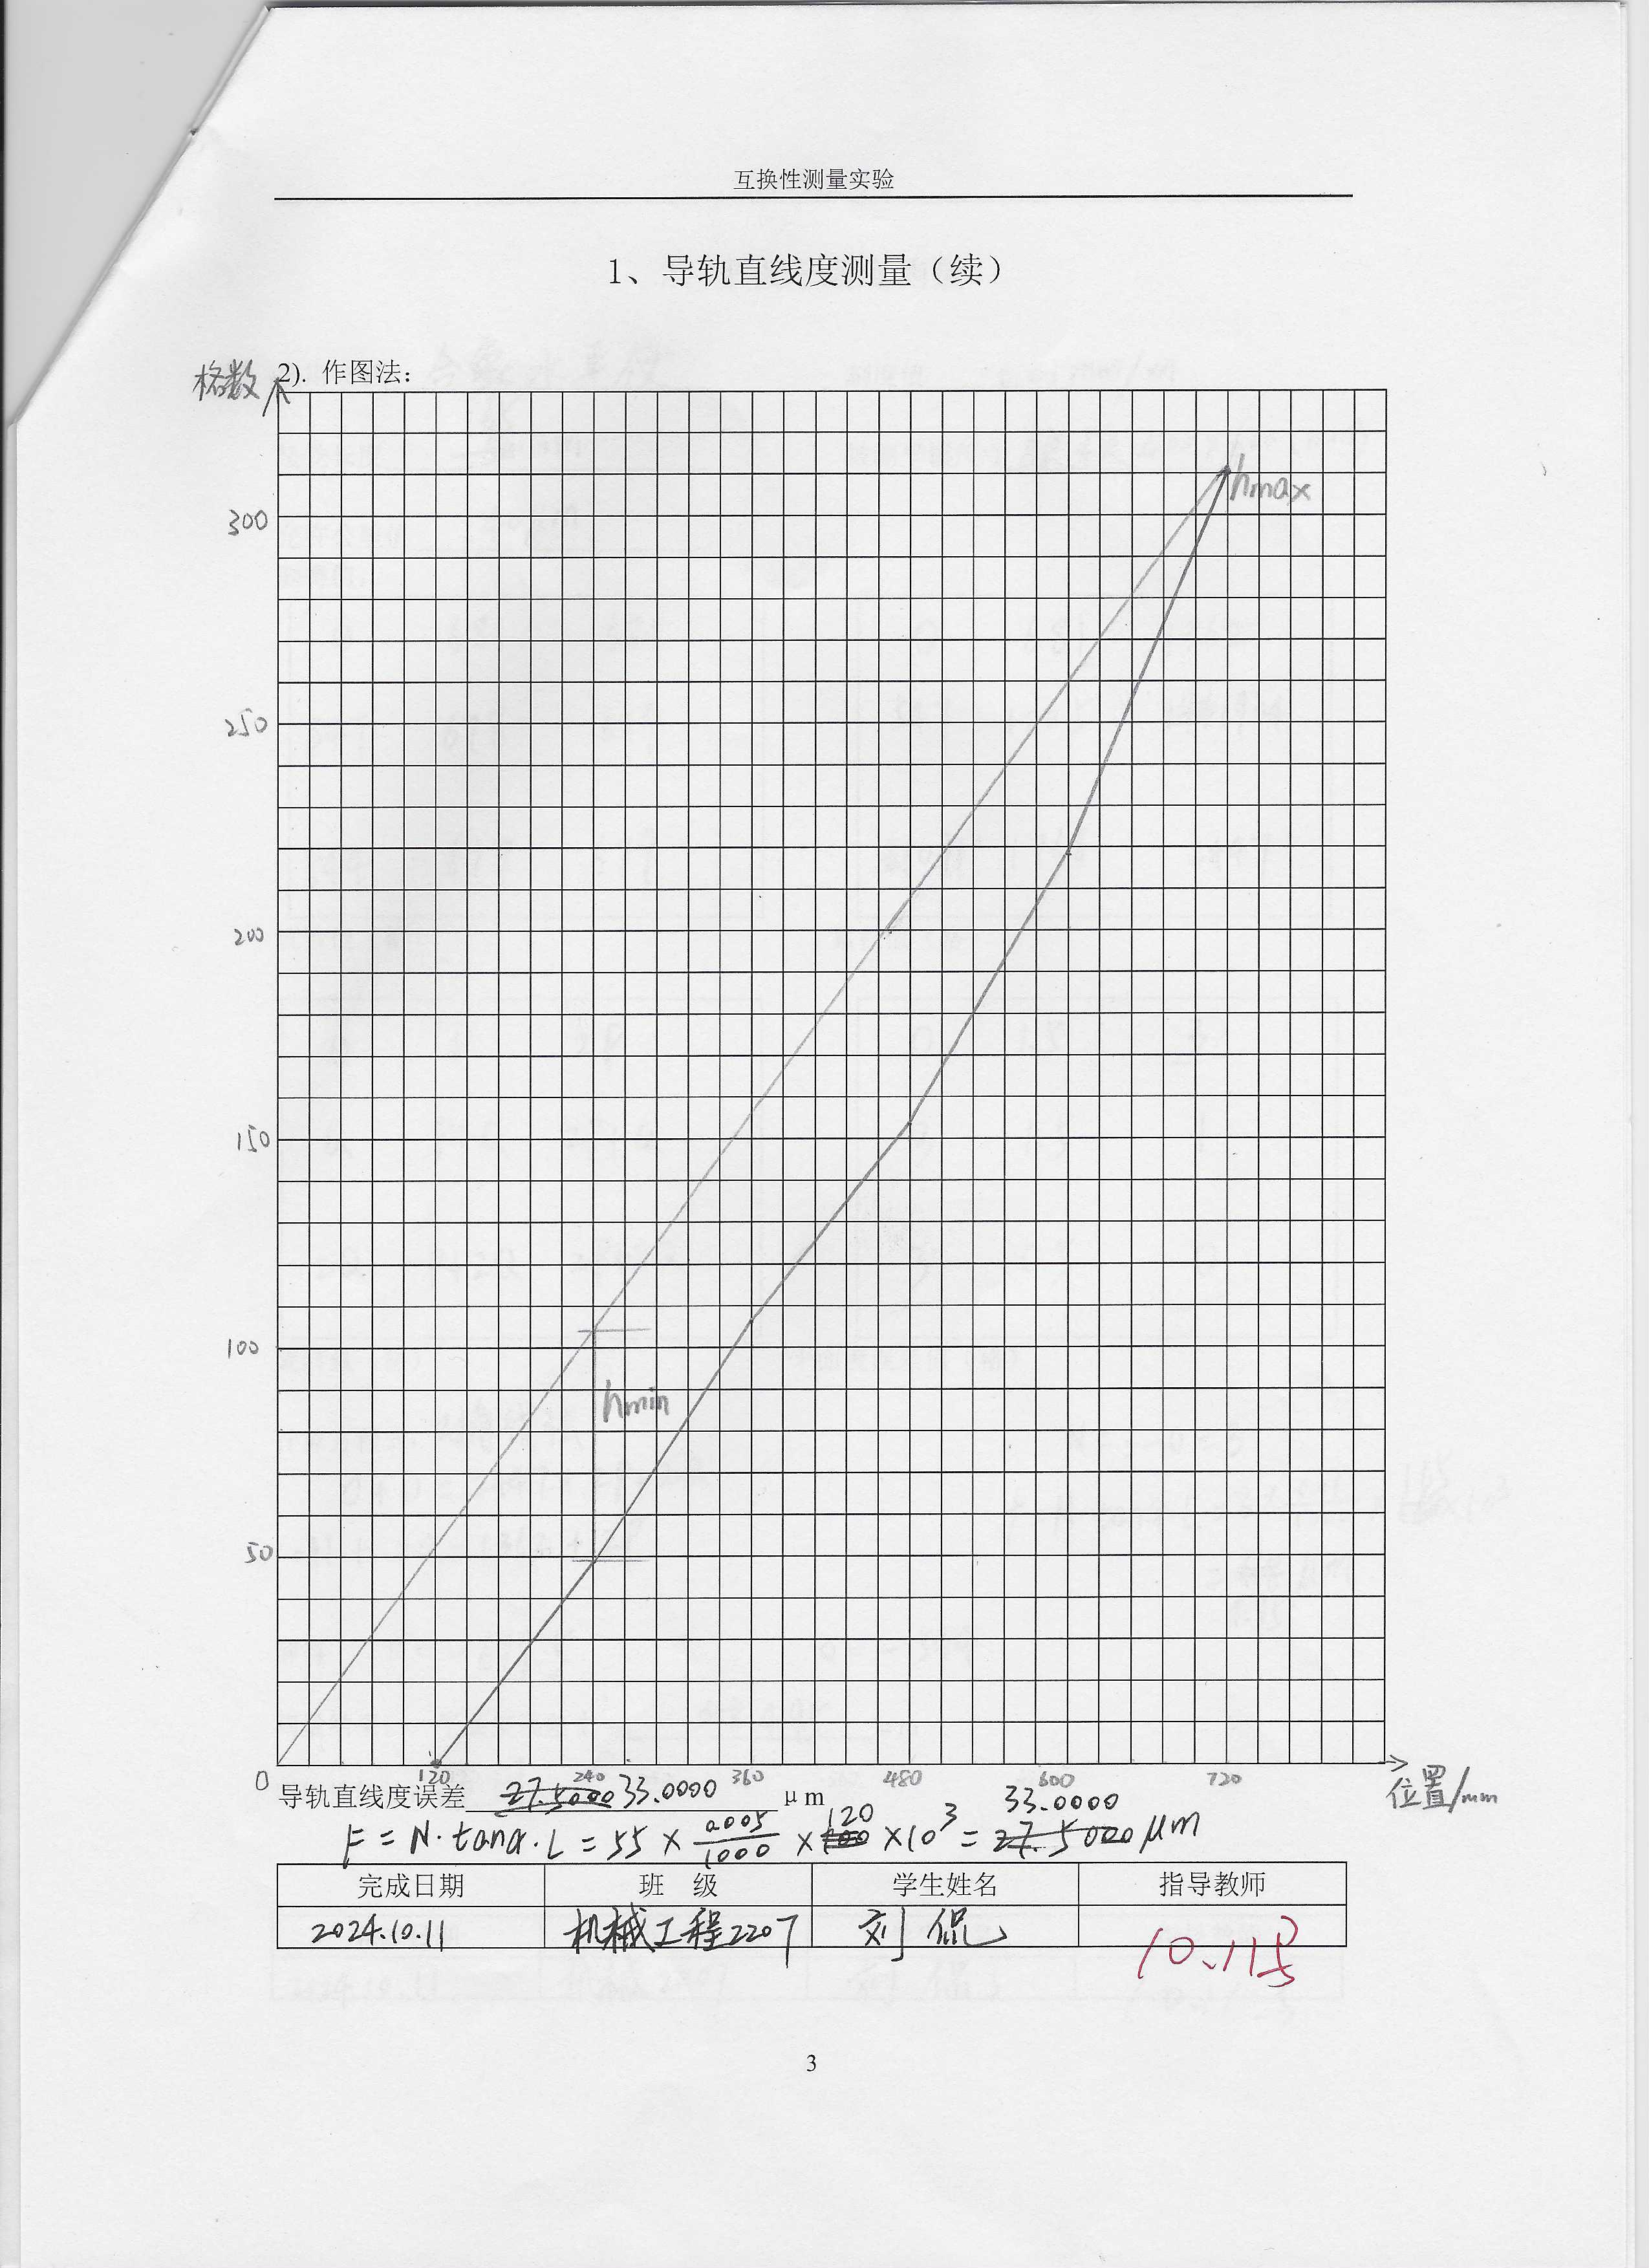 互换性测量实验
1、导轨直线度测量（续）
格数 2). 作图法：
hmax
300
250
200
150
100
hmin
50
0 120 240 360 480 600 720 位置/mm
导轨直线度误差 27.5000 33.0000 μm
33.0000
F = N·tanα·L = 55 × 0.005/1000 × 120 ×10³ = 27.5000 μm
完成日期 班 级 学生姓名 指导教师
2024.10.11 机械工程2207 刘侃
10.11
3